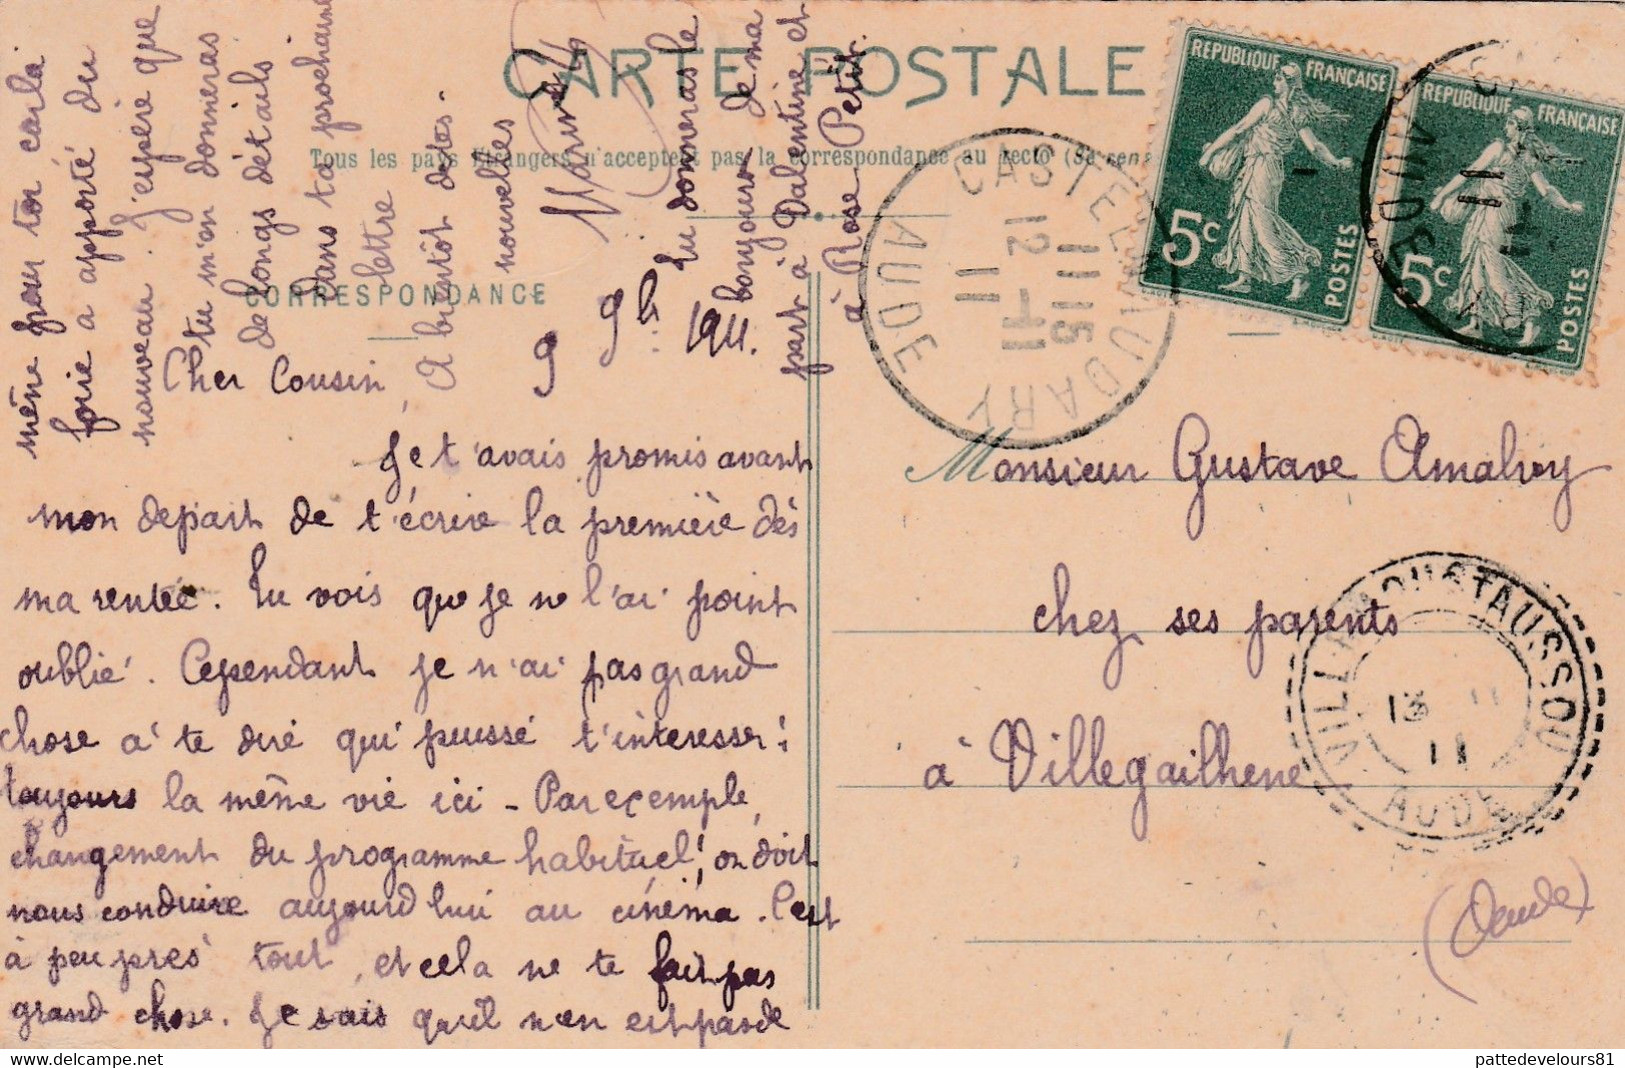 CARTE POSTALE
Tous les pays Etrangers n'acceptent pas la correspondance au recto (Se rens
CORRESPONDANCE
9 9bre 1911.
Cher Cousin,
Je t'avais promis avant
mon depart de t'écrire la première dès
ma rentée. Tu vois que je ne l'ai point
oublié. Cependant je n'ai pas grand
chose à te dire qui puisse t'interesser:
toujours la même vie ici - Par exemple,
changement du programme habituel! on doit
nous conduire aujourd'hui au cinéma. C'est
à peu près tout, et cela ne te fait pas
grand chose. Je sais qu'il n'en est pas de
même pour toi car la
foire a apporté du
nouveau. J'espère que
tu m'en donneras
de longs détails
dans ta prochaine
lettre
A bientôt de tes
nouvelles
Tu donneras le
bonjour de ma
part à Valentine et
à Rose Petit.
Monsieur Gustave Amalvy
chez ses parents
à Villegailhenc
(Aude)
REPUBLIQUE FRANÇAISE
5c
POSTES
REPUBLIQUE FRANÇAISE
5c
POSTES
CASTELNAUDARY
11 15
12 -11
11
AUDE
AUDE
VILLEMOUSTAUSSOU
13
11
AUDE
pattedevelours81